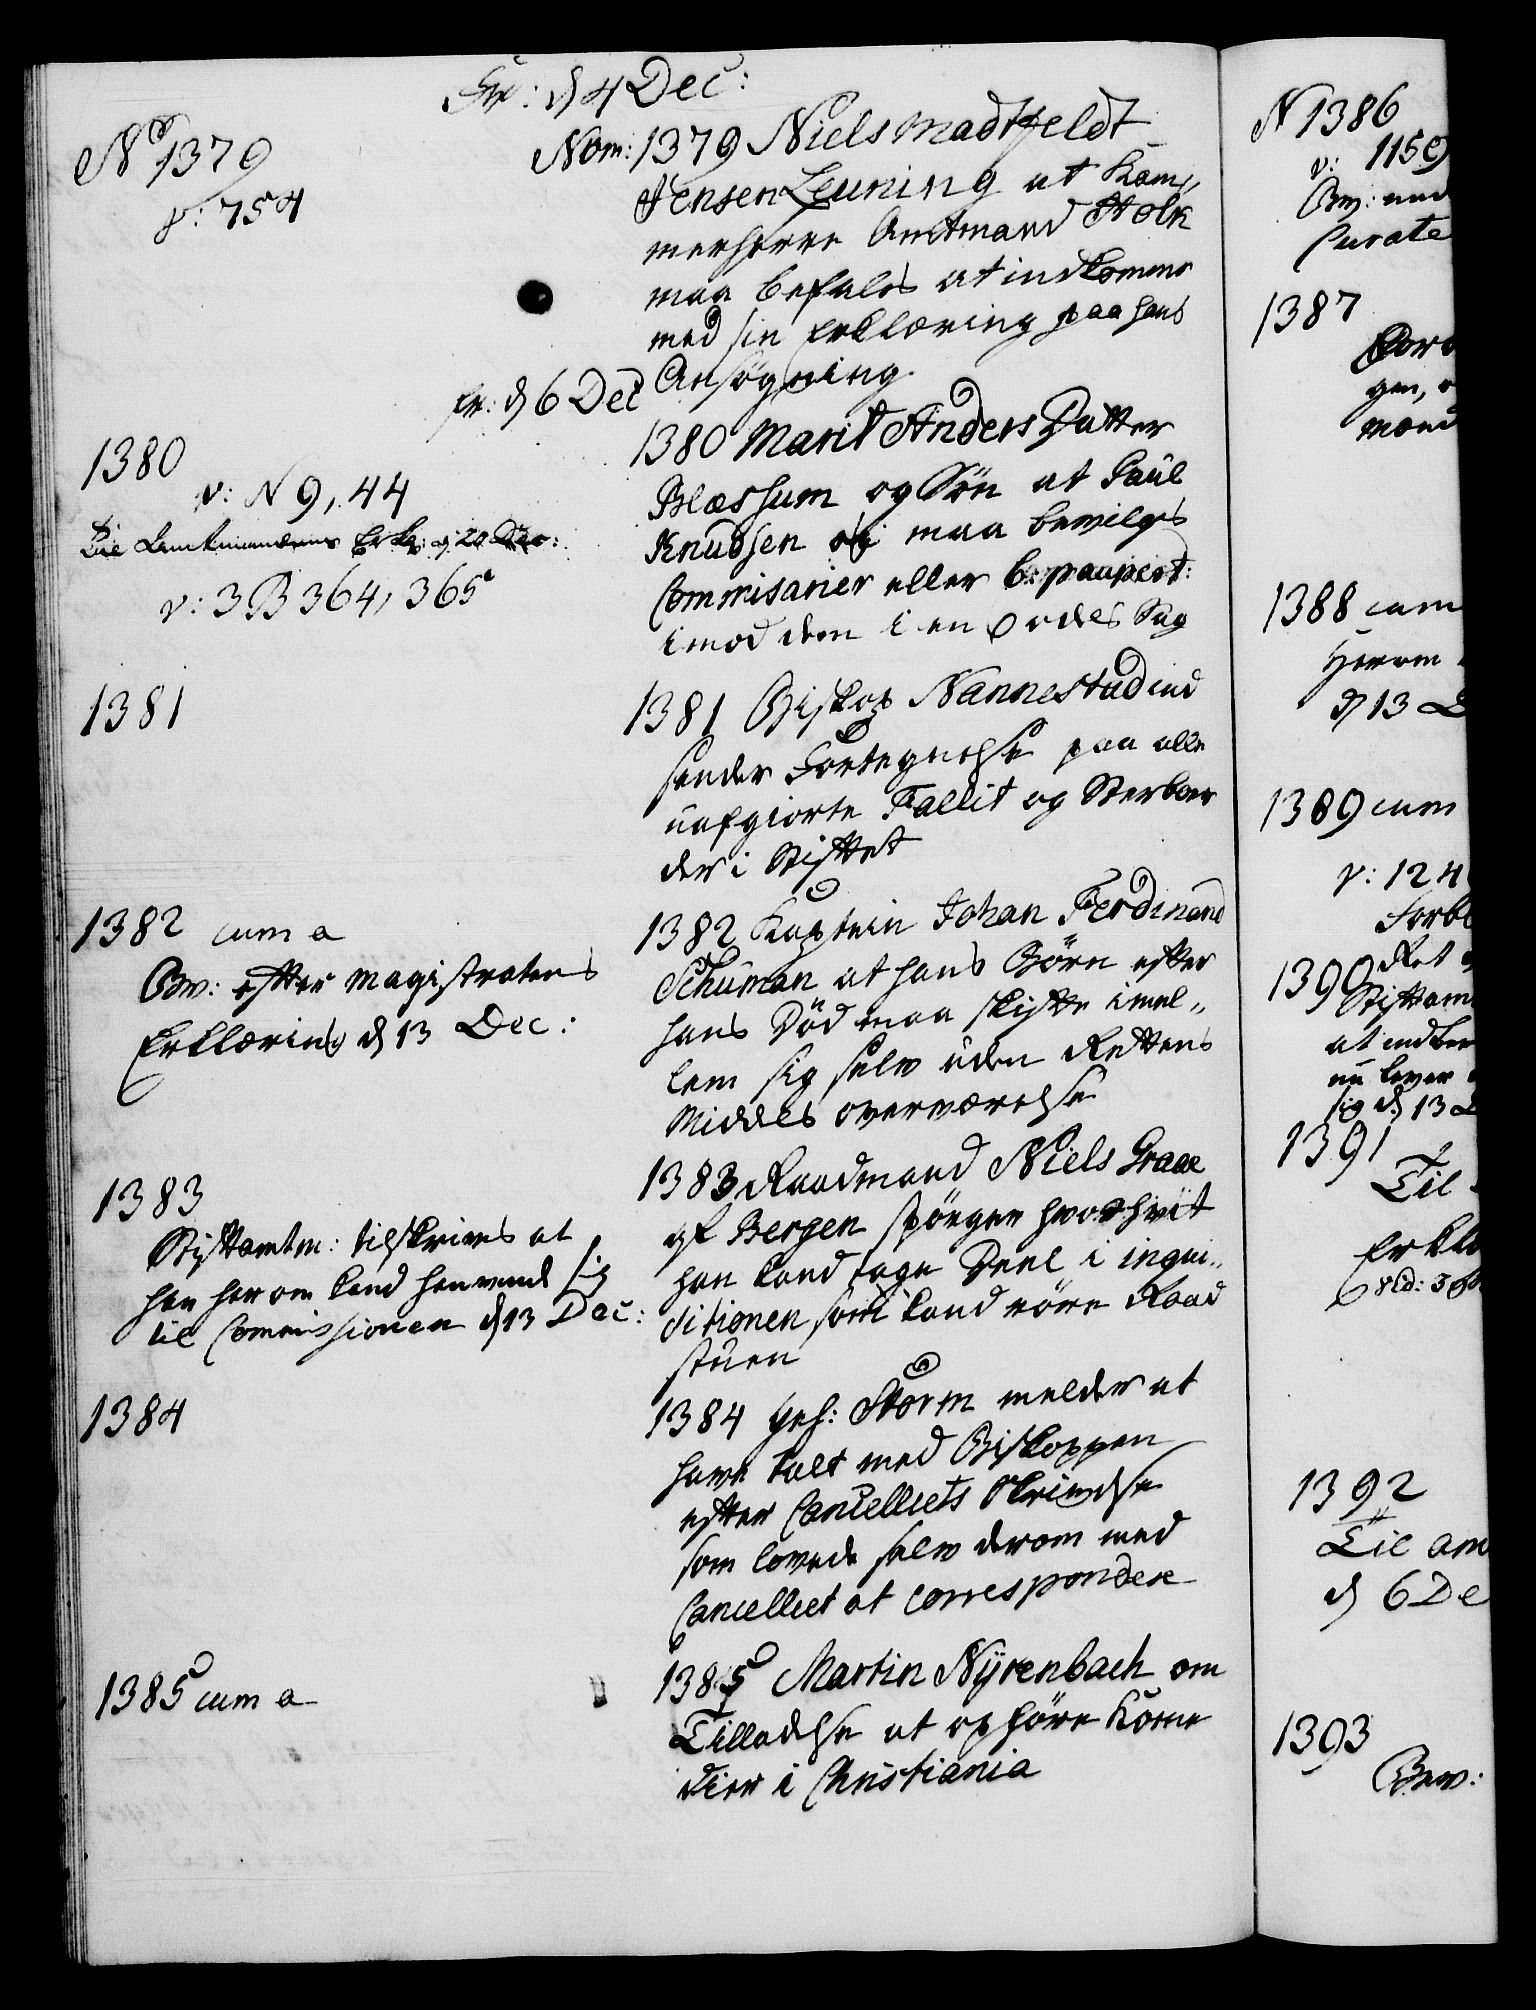 Fr: d 4 Dec:
No 1379
v: 754
Nom: 1379 Niels Madtfeldt
Jensen Leuning at Kam,,
merherre Amtmand Holk
maa befales at indkomme
med sin Erklæring paa hans
Ansøgning.
fr: d 6 Dec
1380
v: N 9, 44
Til Lauktmændene Erkl: d 20 Dec:
v: 3 B 364, 365
1380 Marit Anders Datter
Blæshum og Søn at Paul
Knudsen ei maa bevilges
Commisarier eller b. paupert:
imod dem i en Odels Sag
1381
1381 Biskop Nannestad ind
sender Fortegnelse paa alle
uafgiorte Fallit og Sterboer
der i Stiftet
1382 cum a
Bw: efter Magistratens
Erklæring d 13 Dec:
1382 Kaptein Johan Ferdinand
Schuman at hans Børn efter
hans Død maa skifte imel,,
lem sig selv uden Rettens
Middels overværelse
1383
Stiftamtm: tilskrives at
han herom kand henvende sig
til Commissionen d 13 Dec:
1383 Raadmand Niels Graae
af Bergen spørger hvorhvit
han kand tage Deel i inqui,,
sitionen som kand røre Raad
stuen
1384
1384 Geh: Storm melder at
have talt med Biskoppen
efter Cancelliets Skrivelse
som lovede selv derom med
Cancelliet at correspondere
1385 cum a
1385 Martin Nÿrenbach om
Tilladelse at opføre Kome
dier i Christiania
N 1386
v: 1159
Bw: und
Curate
1387
gen, o
mænd
1388 cum
Herom
d 13 D
1389 cum
v: 124
Forbl
Ret
1390
Stiftam
at indber
nu lever
sig d 13 D
1391
Til
Erklæ
1392
Til am
d 6 De
1393
Bew: